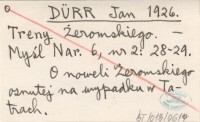 DÜRR Jan 1926.
Treny Żeromskiego. —
Myśl Nar. 6, nr 2: 28-29.
O noweli Żeromskiego
osnutej na wypadku w Ta-
trach.